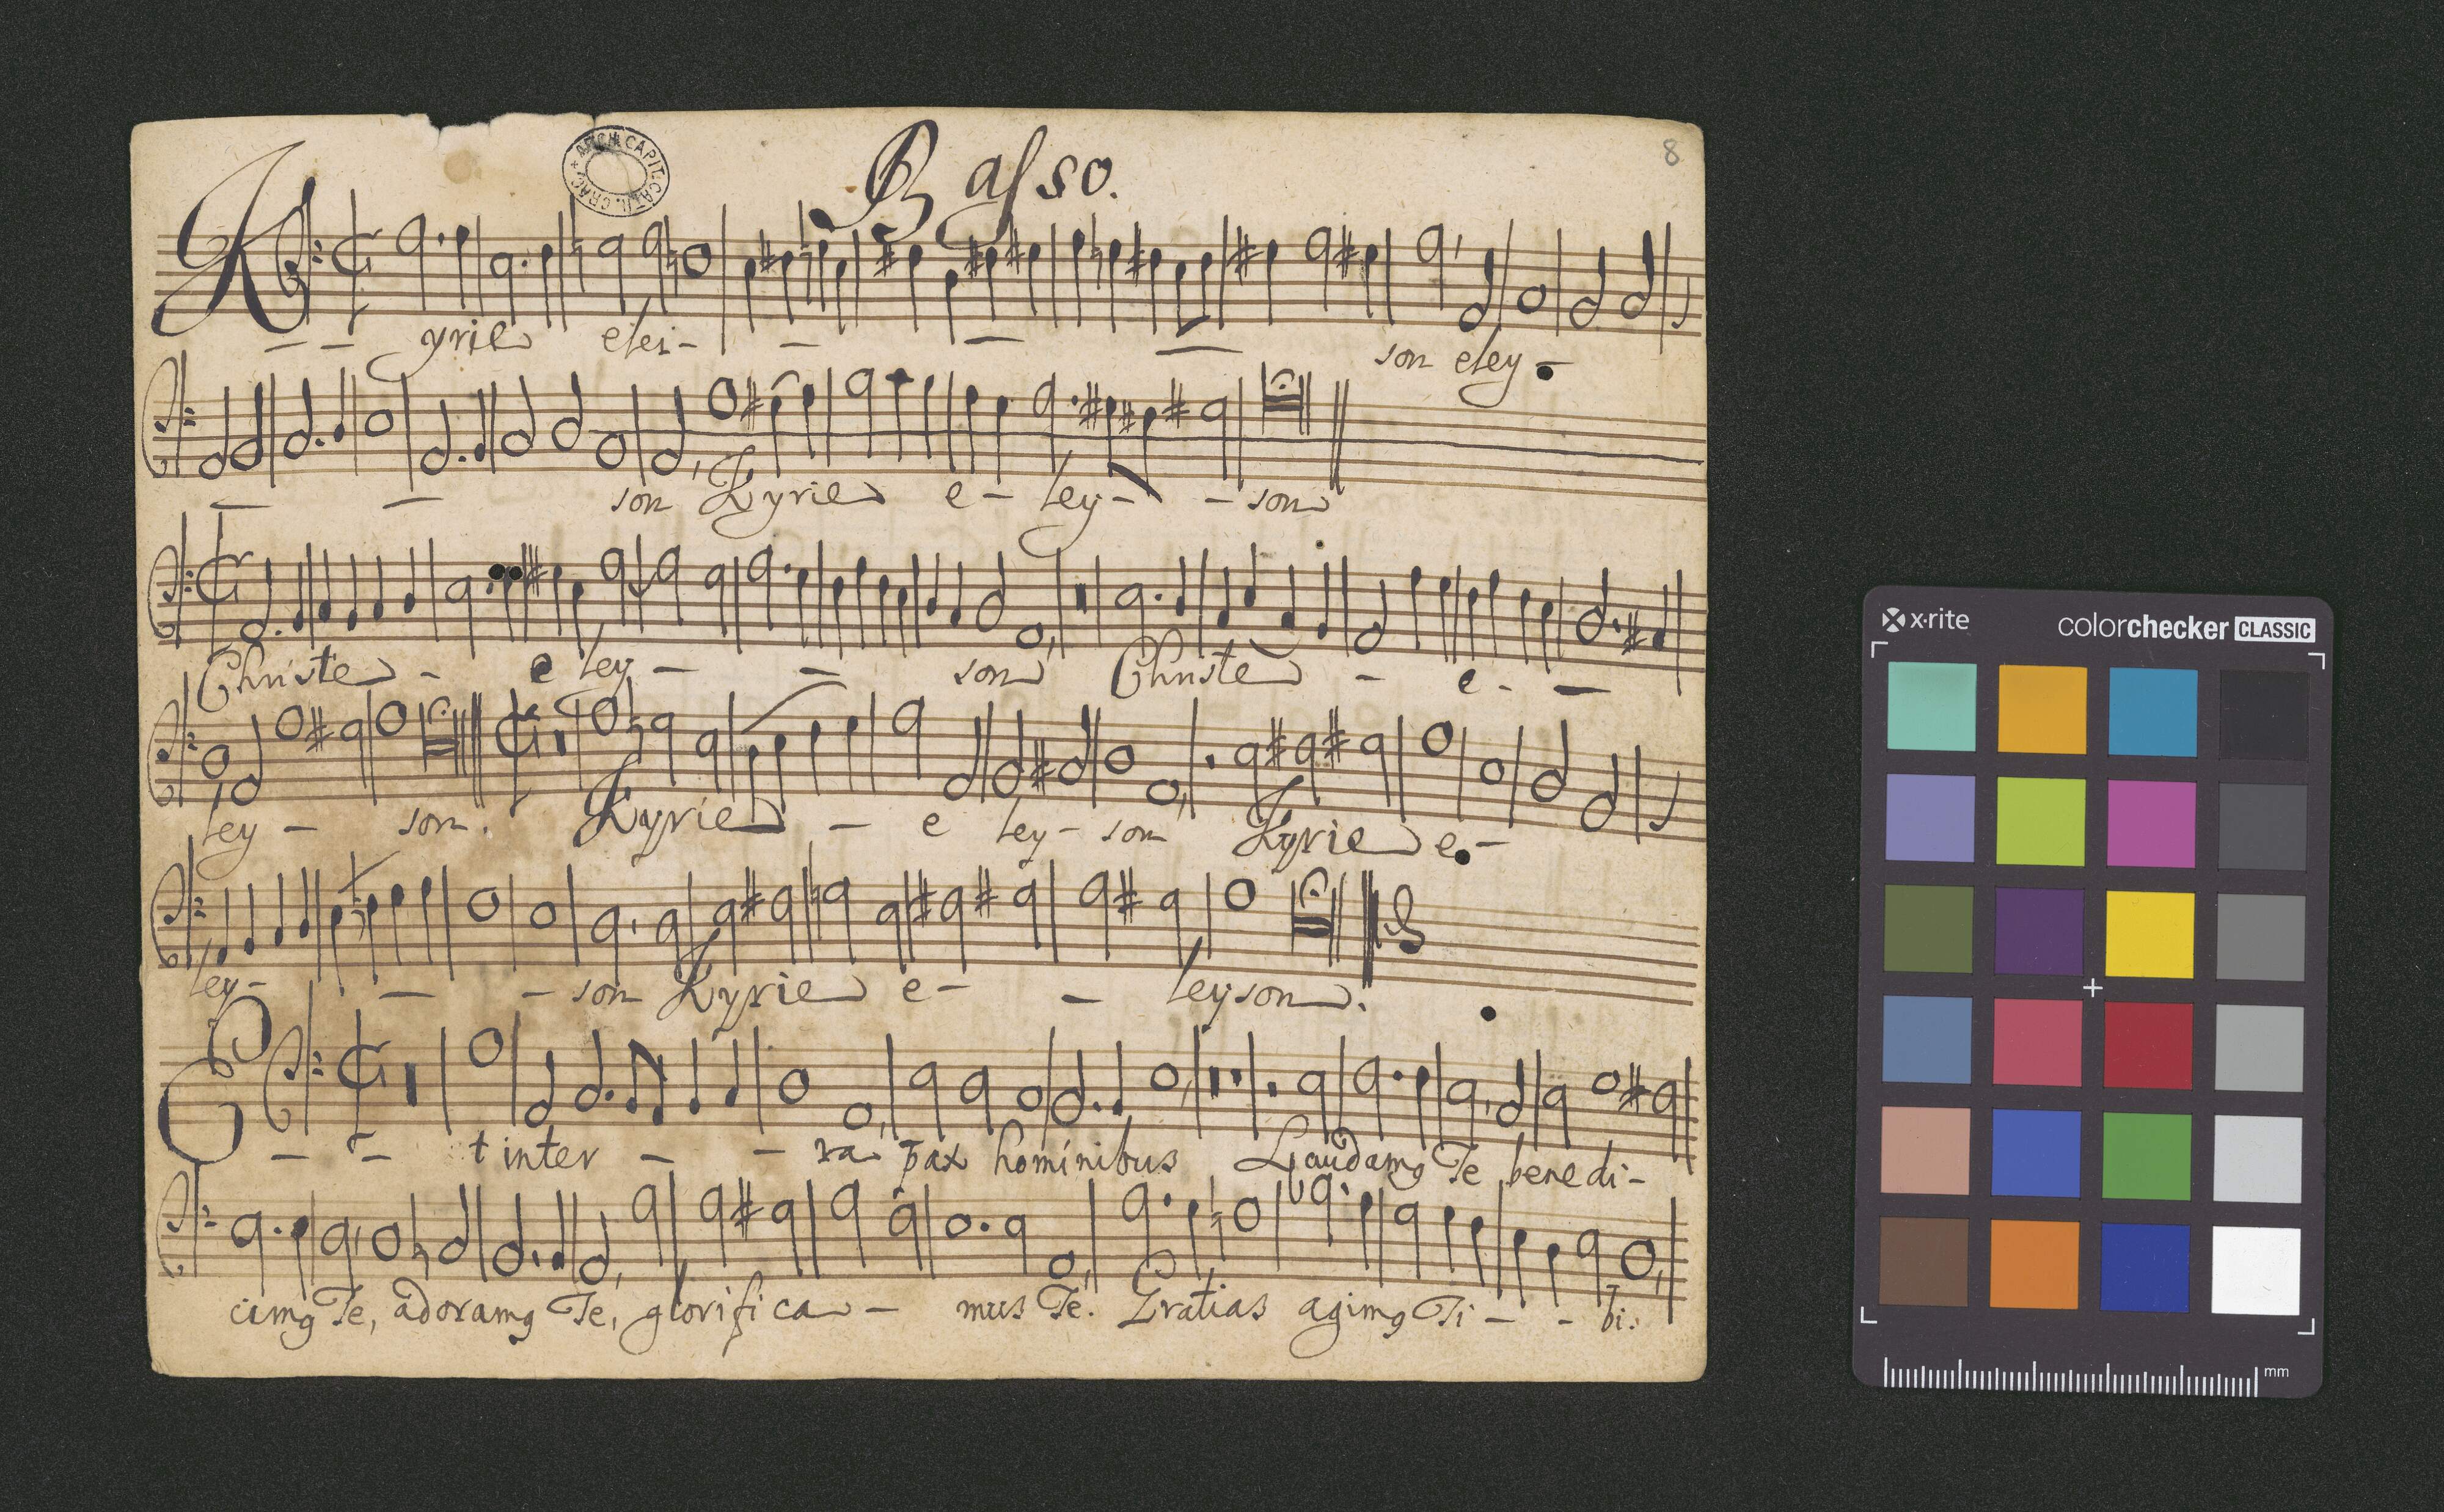 Basso.
8
ARCH. CAPIT. CATH. CRAC.
Kyrie elei - - - - son eley -
- - son Kyrie e - ley - - son
Christe - e ley - - son Christe - e - -
ley - son. Kyrie - e ley - son Kyrie e -
ley - - - son Kyrie e - - leyson.
Et in ter - - ra pax hominibus Laudamg Te bene di -
cimg Te, adoramg Te, glorifi ca - mus Te. Gratias agimg Ti - - bi.
x·rite
colorchecker CLASSIC
mm